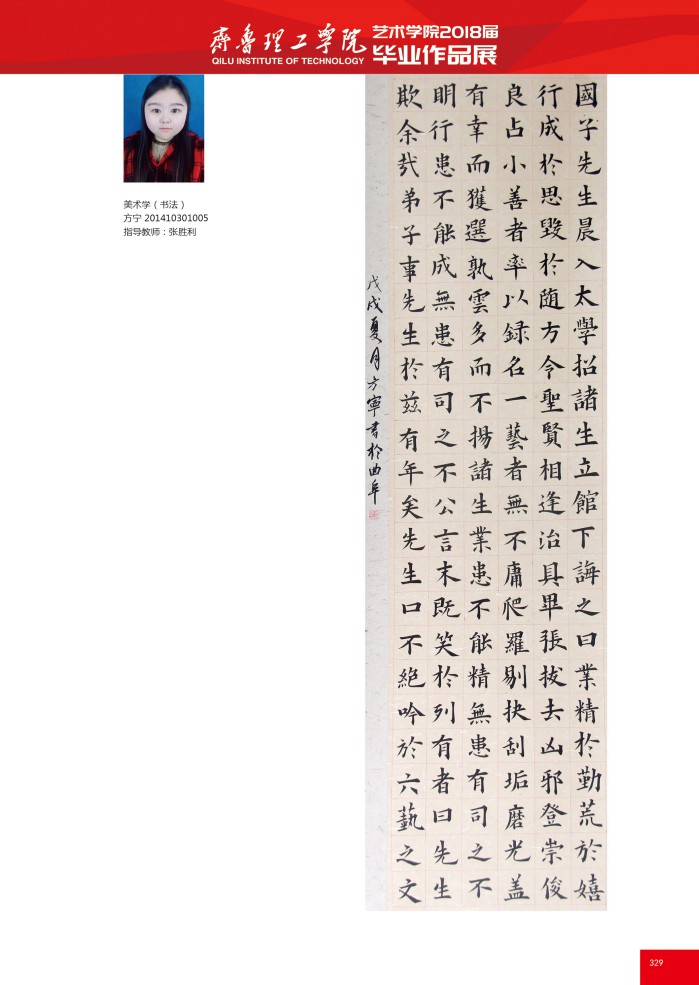 齊魯理工學院
QILU INSTITUTE OF TECHNOLOGY
艺术学院2018届
毕业作品展
美术学（书法）
方宁 201410301005
指导教师：张胜利
國子先生晨入太學招諸生立館下誨之曰業精於勤荒於嬉
行成於思毀於随方今聖賢相逢治具畢張拔去凶邪登崇俊
良占小善者率以録名一藝者無不庸爬羅剔抉刮垢磨光盖
有幸而獲選孰雲多而不揚諸生業患不能精無患有司之不
明行患不能成無患有司之不公言末既笑於列有者曰先生
欺余㢤弟子事先生於兹有年矣先生口不絶吟於六藝之文
戊戌夏月方寧書於曲阜
329